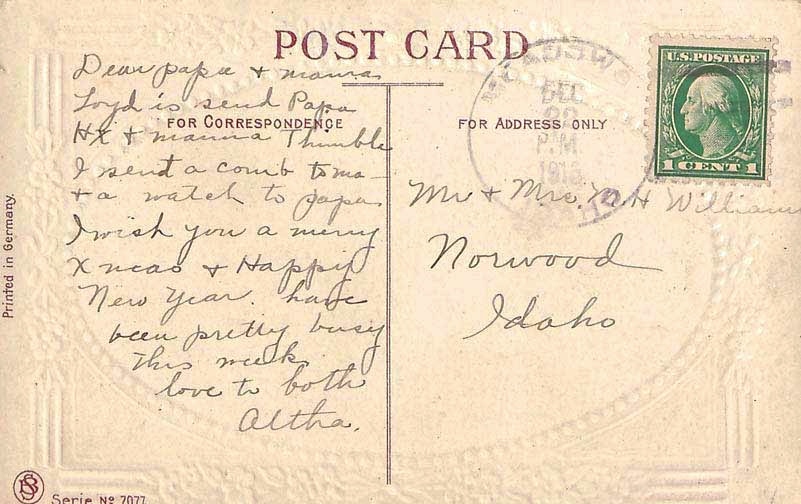 POST CARD
FOR CORRESPONDENCE
FOR ADDRESS ONLY
Dear papa & mama
Loyd is send Papa
HX & mama Thimble
I sent a comb to ma—
& a watch to papa
I wish you a merry
Xmas & Happy
New Year. have
been pretty busy
this week
love to both
Altha.
MEADOW
DEC
22
P.M.
IDAHO
U.S. POSTAGE
1 CENT 1
Mr & Mrs. H Williams
Norwood
Idaho
Printed in Germany.
Serie No 7077